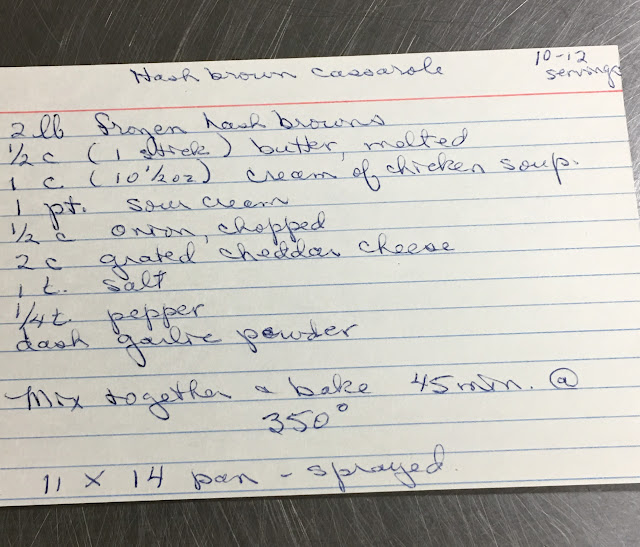 Hash brown cassarole
10-12
servings
2 lb frozen hash browns
1/2 c (1 stick) butter, melted
1 c. (10 1/2 oz) cream of chicken soup.
1 pt. sour cream
1/2 c onion, chopped
2 c grated cheddar cheese
1 t. salt
1/4 t. pepper
dash garlic powder
Mix together & bake 45 min. @
350°
11 x 14 pan - sprayed.